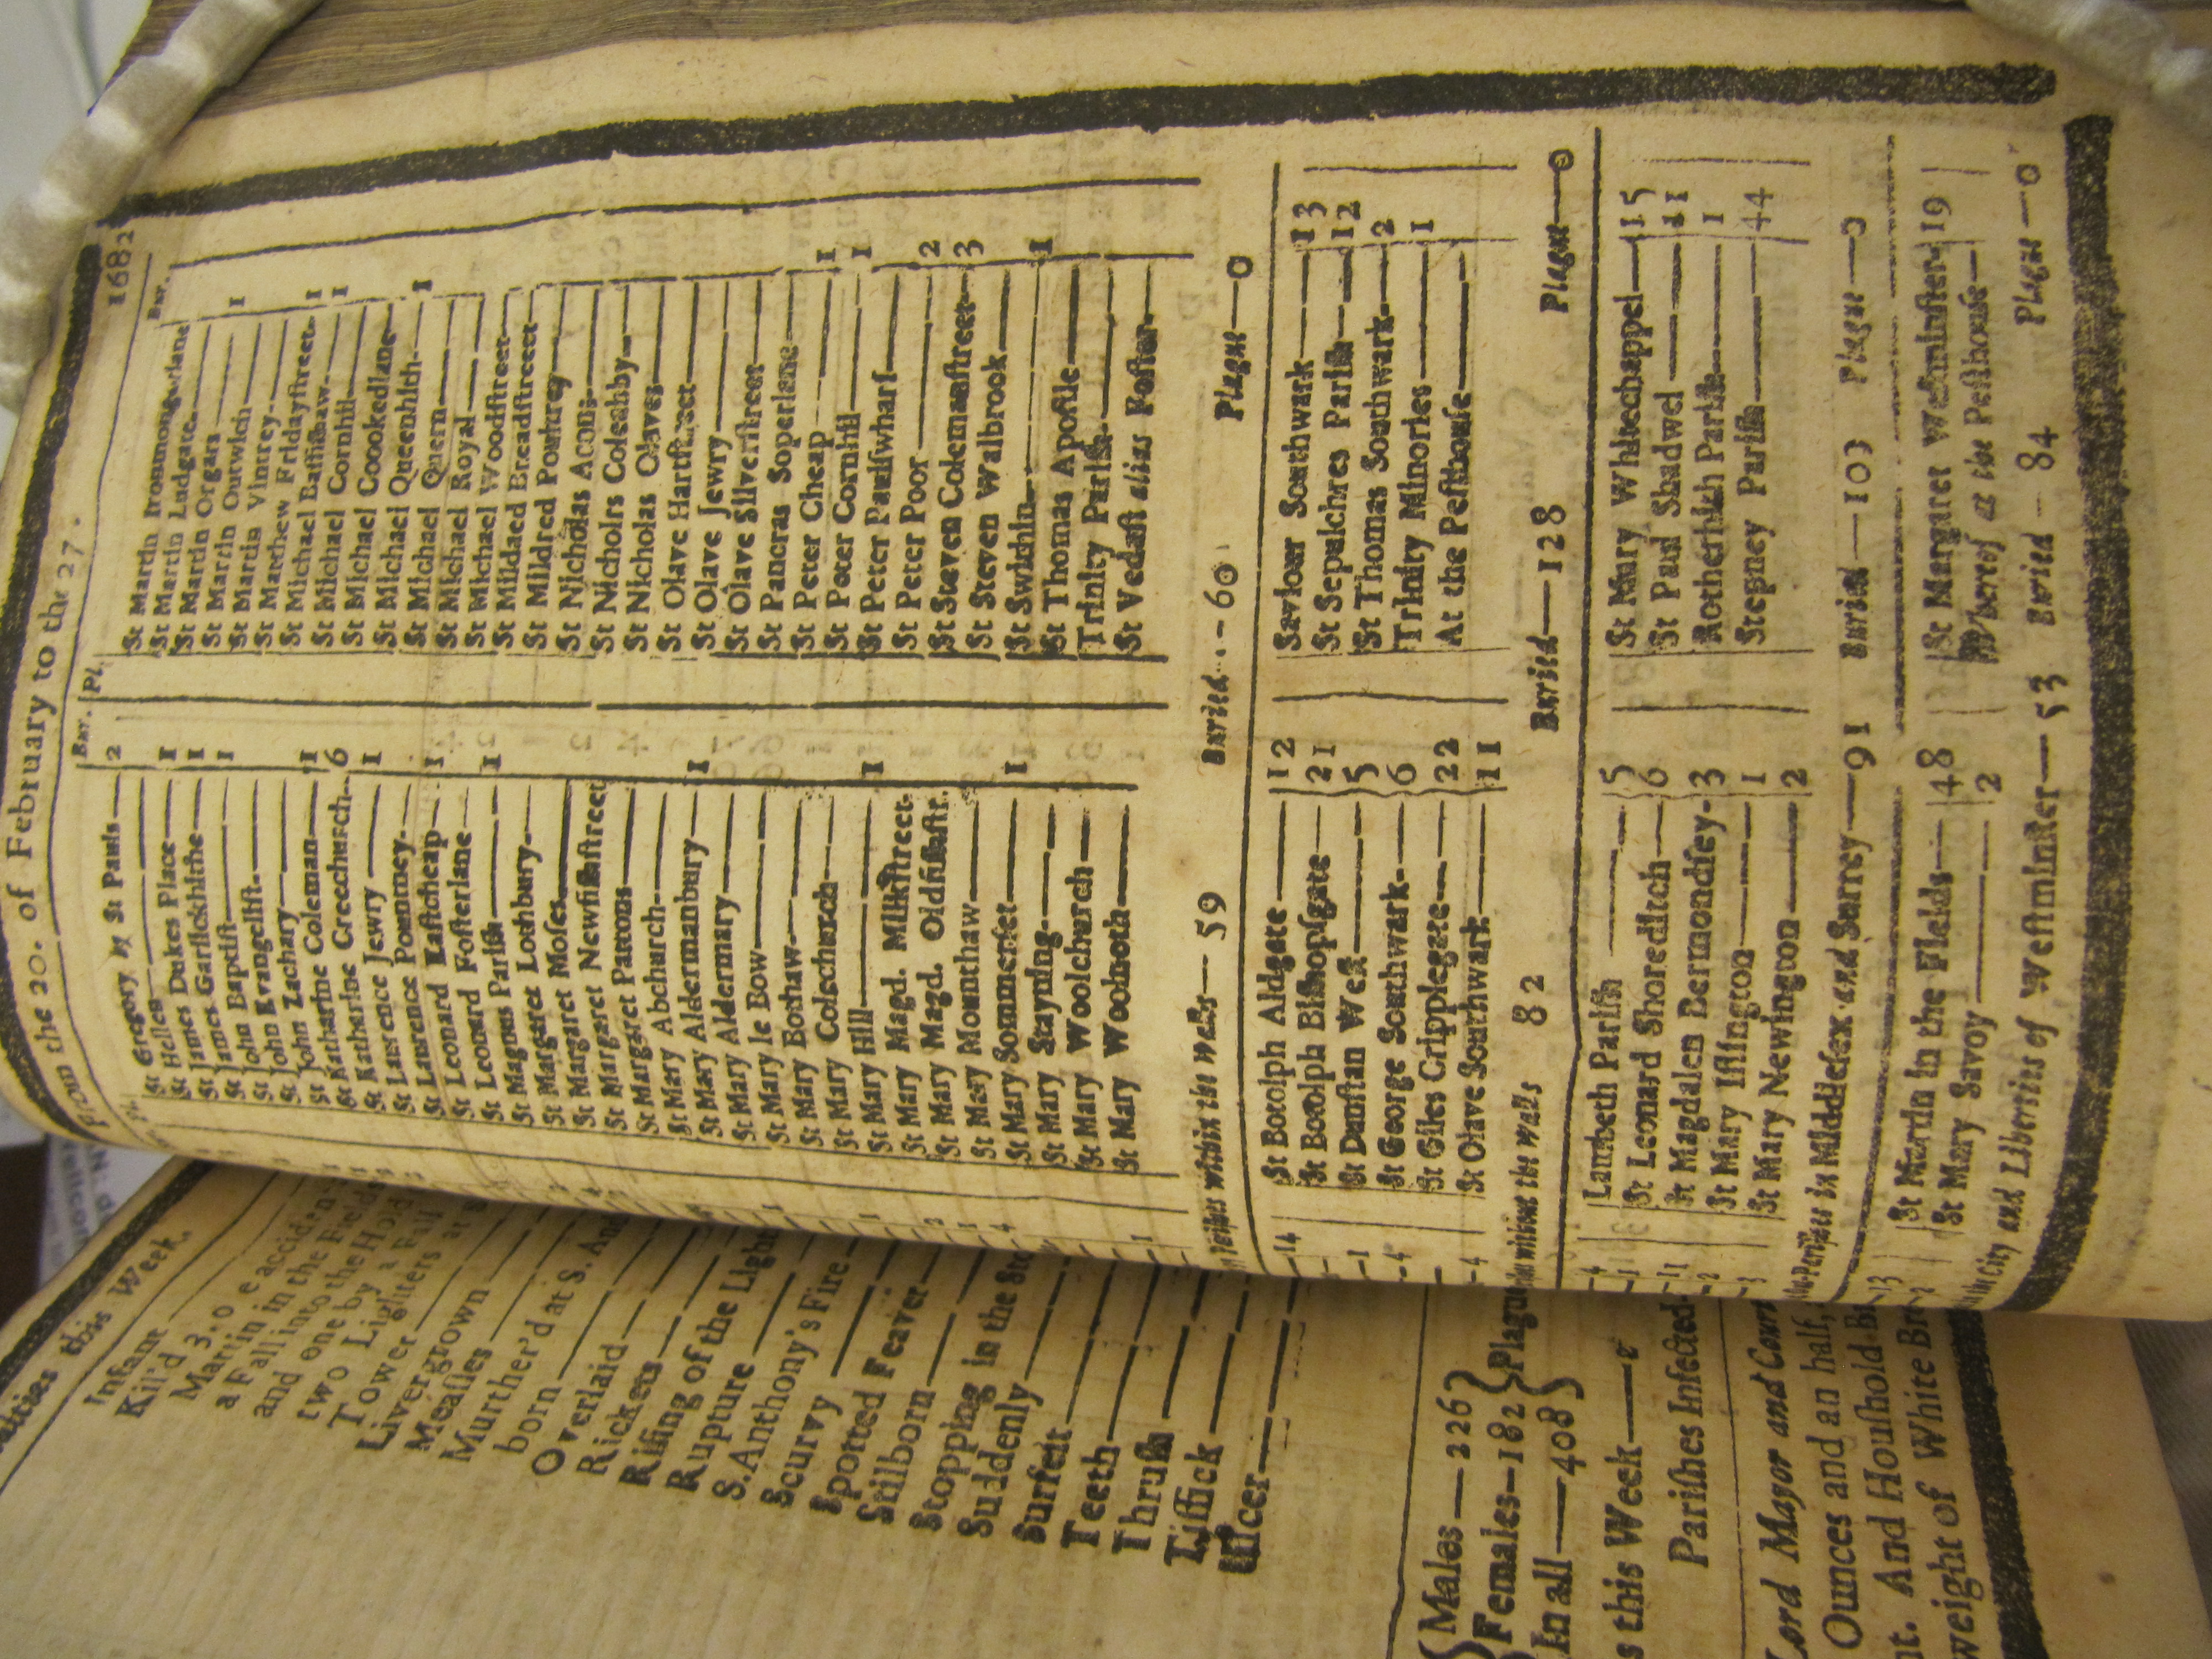 From the 20. of February to the 27. 1682
Bur. Pl. Bur.
St Gregory by St Pauls— 2
St Hellen—
St James Dukes Place— 1
St James Garlickhithe— 1
St John Baptist— 1
St John Evangelist—
St John Zachary—
St Katharine Coleman— 1
St Katharine Creechurch— 6
St Laurence Jewry— 1
St Laurence Pountney—
St Leonard Eastcheap— 1
St Leonard Fosterlane
St Magnus Parish— 1
St Margaret Lothbury—
St Margaret Moses—
St Margaret Newfishstreet
St Margaret Pattons—
St Mary Abchurch—
St Mary Aldermanbury— 1
St Mary Aldermary—
St Mary le Bow—
St Mary Bothaw—
St Mary Colechurch—
St Mary Hill— 1
St Mary Magd. Milkstreet-
St Mary Magd. Oldfishstr.
St Mary Mounthaw—
St Mary Sommerset— 1
St Mary Stayning—
St Mary Woolchurch—
St Mary Woolnoth—
St Martin Ironmongerlane
St Martin Ludgate—
St Martin Orgars—
St Martin Outwich— 1
St Martin Vintrey—
St Matthew Fridaystreet-
St Michael Bassishaw— 1
St Michael Cornhil— 1
St Michael Coookedlane
St Michael Queenhith—
St Michael Quern— 1
St Michael Royal—
St Michael Woodstreet—
St Mildaed Breadstreet
St Mildred Poultrey
St Nicholas Acons—
St Nicholrs Coleabby—
St Nicholas Olaves—
St Olave Hartstreet—
St Olave Jewry—
St Olave Silverstreet—
St Pancras Soperlane—
St Peter Cheap— 1
St Peter Cornhil— 1
St Peter Paulswharf—
St Peter Poor— 2
St Steven Colemanstreet— 3
St Steven Walbrook—
St Swithin— 1
St Thomas Apostle—
Trinity Parish—
St Vedast alias Foster—
within the walls— 59 Buried— 60 Plague— 0
St Botolph Aldgate— 12
St Botolph Bishopsgate— 21
St Dunstan West— 5
St George Southwark— 6
St Giles Cripplegate— 22
St Olave Southwark— 11
Saviour Southwark— 13
St Sepulchres Parish— 12
St Thomas Southwark— 2
Trinity Minories— 1
At the Pesthouse—
without the walls 82 Buried— 128 Plague— 0
Lambeth Parish— 5
St Leonard Shoreditch— 6
St Magdalen Bermondsey- 3
St Mary Islington— 1
St Mary Newington— 2
St Mary Whitechappel— 15
St Paul Shadwel— 11
Rotherhith Parish— 1
Stepney Parish— 44
in Middlesex and Surrey— 91 Buried— 103 Plague— 0
St Martin in the Fields— 48
St Mary Savoy— 2
St Margaret Westminster 19
Whereof at the Pesthouse—
City and Liberties of Westminster— 53 Buried— 84 Plague— 0
this Week.
Infant
Kil'd 3.
Martin in
a Fall in the
and one by a Fall
Tower
Livergrown
Measles
Murther'd at S.
born
Overlaid
Rickets
Rising of the Lights
Rupture
S. Anthony's Fire— 1
Scurvy
Spotted Feaver— 2
Stilborn
Stopping in the
Suddenly
Surfeit—
Teeth—
Thrush
Tissick
Ulcer—
Males— 226
Females— 182
In all— 408
Plague
this Week—
Parishes Infected
Lord Mayor and Court
Ounces and an half,
And Houshold
weight of White